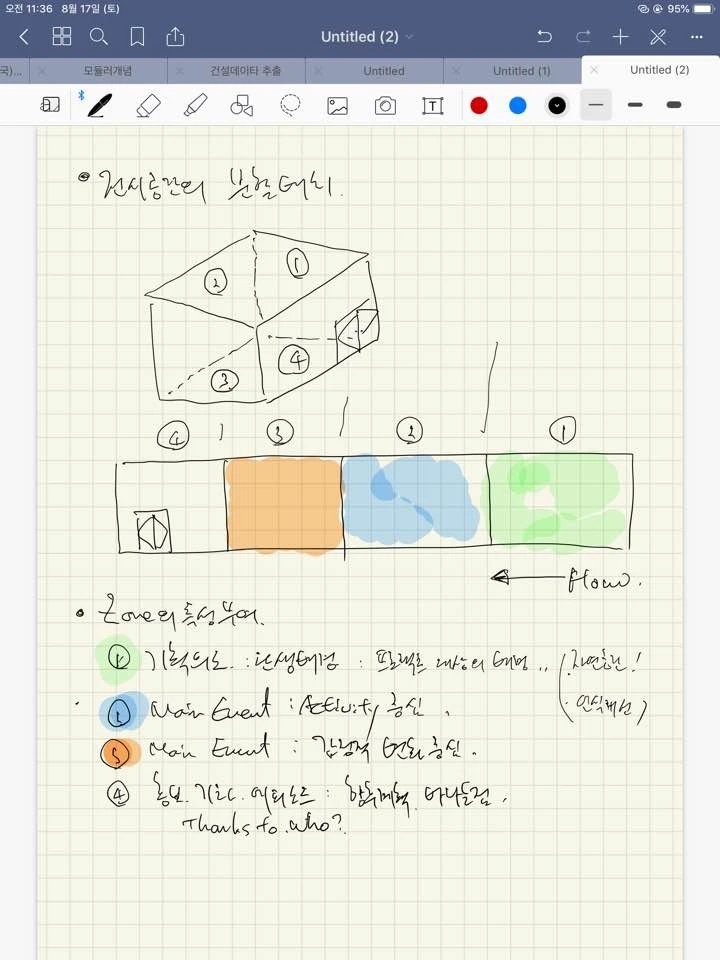 오전 11:36 8월 17일 (토) 95%
Untitled (2)
국)... 모듈러개념 건설데이타 추출 Untitled Untitled (1) Untitled (2)
T
• 전시공간의 분할배치.
② ①
③ ④
④ ③ ② ①
← flow.
• Zone의 특성부여.
① 기획의도. : : 프로젝트 자연공간!
② Main Event : Activity 중심. 인식개선
③ Main Event : 감정적 변화 중심.
④ 홍보. 기타. 에피소드 :
Thanks to. who?